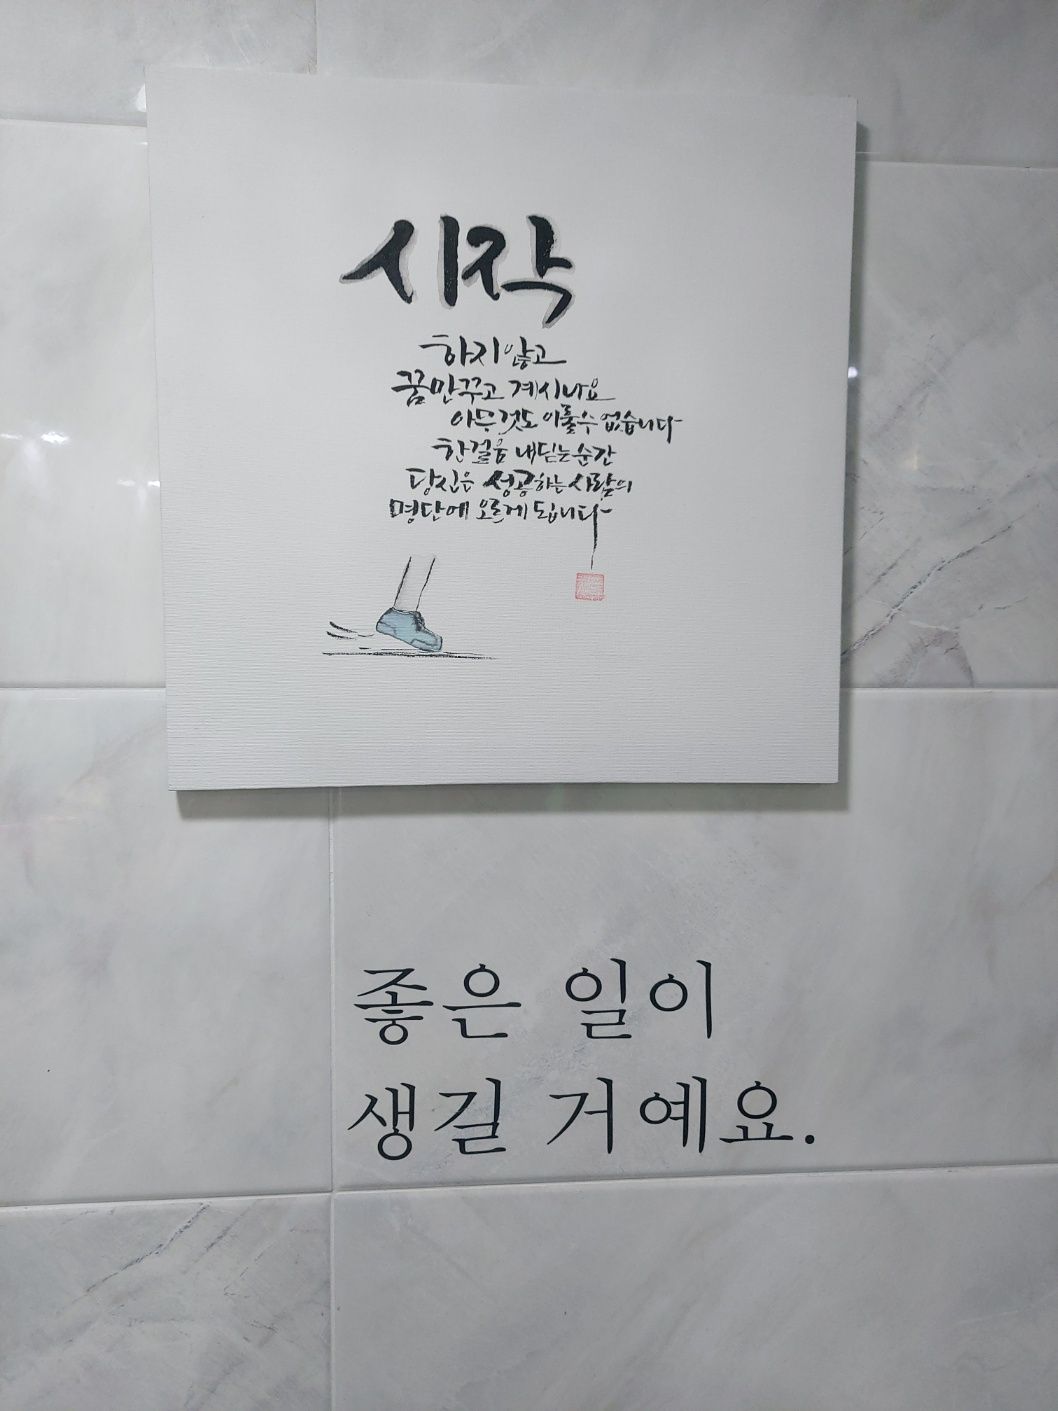 시작
하지않고
꿈만꾸고 계시나요
아무것도 이룰수 없습니다
한걸음 내딛는 순간
당신은 성공하는 사람의
명단에 오르게 됩니다
좋은 일이
생길 거예요.